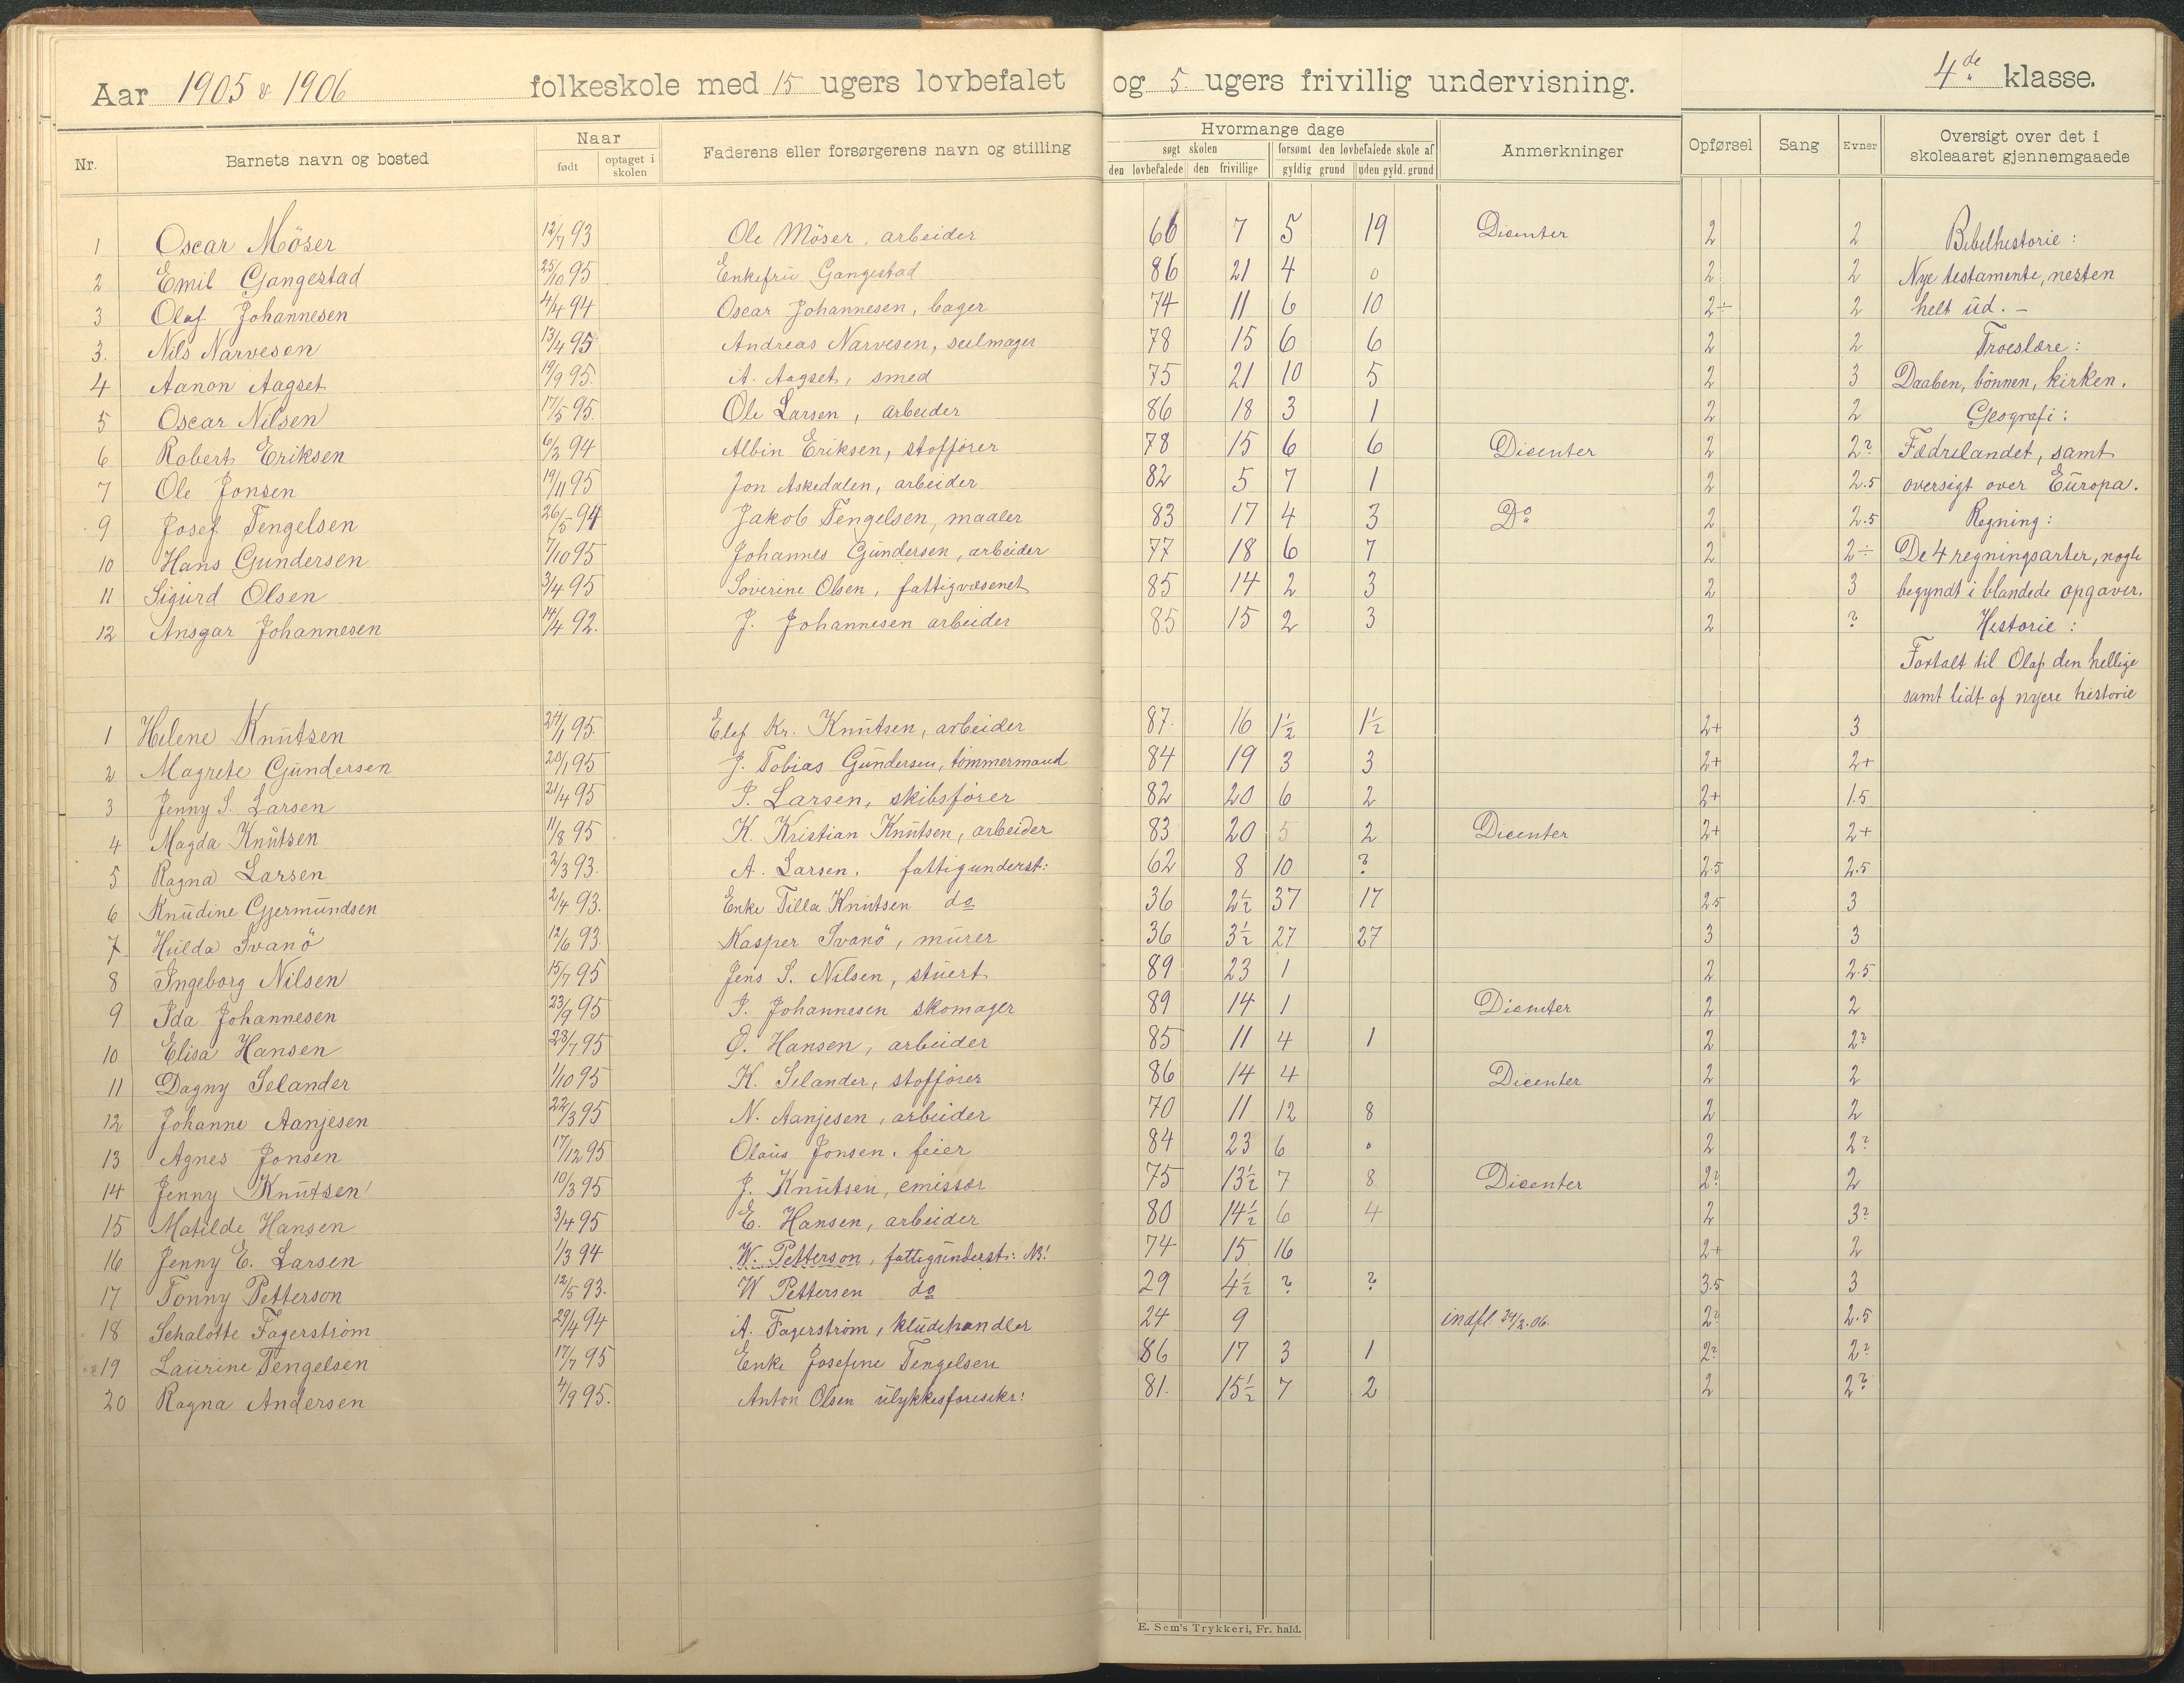 Aar 1905 & 1906 folkeskole med 15 ugers lovbefalet og 5. ugers frivillig undervisning. 4de klasse.
Nr. Barnets navn og bosted Naar født optaget i skolen Faderens eller forsørgerens navn og stilling Hvormange dage søgt skolen den lovbefalede den frivillige forsømt den lovbefalede skole af gyldig grund uden gyld. grund Anmerkninger Opførsel Sang Evner Oversigt over det i skoleaaret gjennemgaaede
1 Oscar Möser 12/7 93 Ole Möser, arbeider 66 7 5 19 Dicenter 2 2 Bibelhistorie:
2 Emil Gangestad 25/10 95 Enkefru Gangestad 86 21 4 0 2 2 Nye testamente, nesten
3 Olaf Johannesen 4/4 94 Oscar Johannesen, bager 74 11 6 10 2÷ 2 helt ud. –
3. Nils Narvesen 13/4 95 Andreas Narvesen, seilmager 78 15 6 6 2 2 Troeslære:
4 Aanon Aagset 19/9 95. A. Aagset, smed 75 21 10 5 2 3 Daaben, bönnen, kirken.
5 Oscar Nilsen 17/5 95. Ole Larsen, arbeider 86 18 3 1 2 2 Geografi:
6 Robert Eriksen 6/2 94 Albin Eriksen, stoffører 78 15 6 6 Dicenter 2 2? Fædrelandet, samt
7 Ole Jonsen 19/11 95 Jon Askedalen, arbeider 82 5 7 1 2 2.5 oversigt over Europa.
9 Josef Tengelsen 26/5 94 Jakob Tengelsen, maaler 83 17 4 3 Do 2 2.5 Regning:
10 Hans Gundersen 7/10 95 Johannes Gundersen, arbeider 77 18 6 7 2 2÷ De 4 regningsarter, nogle
11 Sigurd Olsen 3/4 95 Soverine Olsen, fattigvæsenet 85 14 2 3 2 3 begyndt i blandede opgaver.
12 Ansgar Johannesen 14/4 92. J. Johannesen arbeider 85 15 2 3 2 ? Historie:
Fortalt til Olaf den hellige
samt lidt af nyere historie
1 Helene Knutsen 24/1 95. Elef Kr. Knutsen, arbeider 87. 16 1½ 1½ 2+ 3
2 Magrete Gundersen 20/1 95 J. Tobias Gundersen, tömmermand 84 19 3 3 2+ 2+
3 Jenny S. Larsen 21/4 95 P. Larsen, skibsfører 82 20 6 2 2+ 1.5
4 Magda Knutsen 11/8 95 K. Kristian Knutsen, arbeider 83 20 5 2 Dicenter 2+ 2+
5 Ragna Larsen 2/3 93. A. Larsen. fattigunderst: 62 8 10 ? 2.5 2.5
6 Knudine Gjermundsen 2/4 93. Enke Tilla Knutsen do 36 2½ 37 17 2.5 3
7 Hulda Svanö 12/6 93 Kasper Svanö, murer 36 3½ 27 27 3 3
8 Ingeborg Nilsen 15/7 95 Jens S. Nilsen, stuert 89 23 1 2 2.5
9 Ida Johannesen 23/9 95 P. Johannesen skomager 89 14 1 Dicenter 2 2
10 Elisa Hansen 28/7 95 O. Hansen, arbeider 85 11 4 1 2 2?
11 Dagny Selander 1/10 95 K. Selander, stoffører 86 14 4 Dicenter 2 2
12 Johanne Aanjesen 22/3 95 N. Aanjesen, arbeider 70 11 12 8 2 2
13 Agnes Jonsen 17/12 95 Olaus Jonsen, feier 84 23 6 0 2 2?
14 Jenny Knutsen 10/3 95 J. Knutsen, emissær 75 13½ 7 8 Dicenter 2? 2
15 Matilde Hansen 3/4 95 E. Hansen, arbeider 80 14½ 6 4 2 3?
16 Jenny E. Larsen 1/3 94 W. Petterson, fattigunderst: NB! 74 15 16 2+ 2
17 Tonny Petterson 12/5 93. W Pettersen do 29 4½ ? ? 3.5 3
18 Schalotte Fagerström 29/4 94 A. Fagerström, kludehandler 24 9 indfl. 24/2.06. 2? 2.5
19 Laurine Tengelsen 17/7 95 Enke Josefine Tengelsen 86 17 3 1 2? 2?
20 Ragna Andersen 4/9 95. Anton Olsen ulykkesforsikr: 81. 15½ 7 2 2 2?
E. Sem's Trykkeri, Fr. hald.